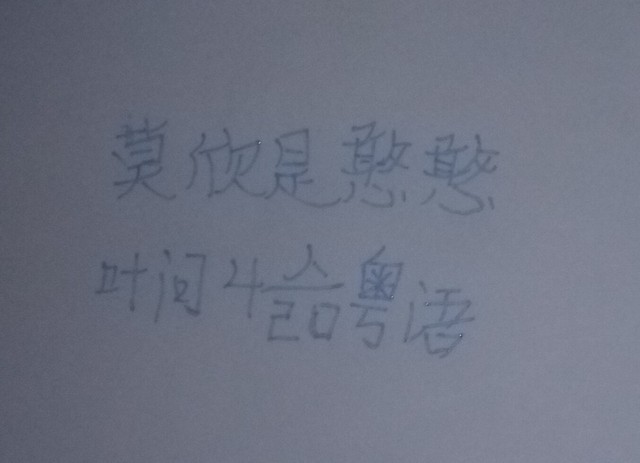 莫欣是憨憨
叶问4 粤语